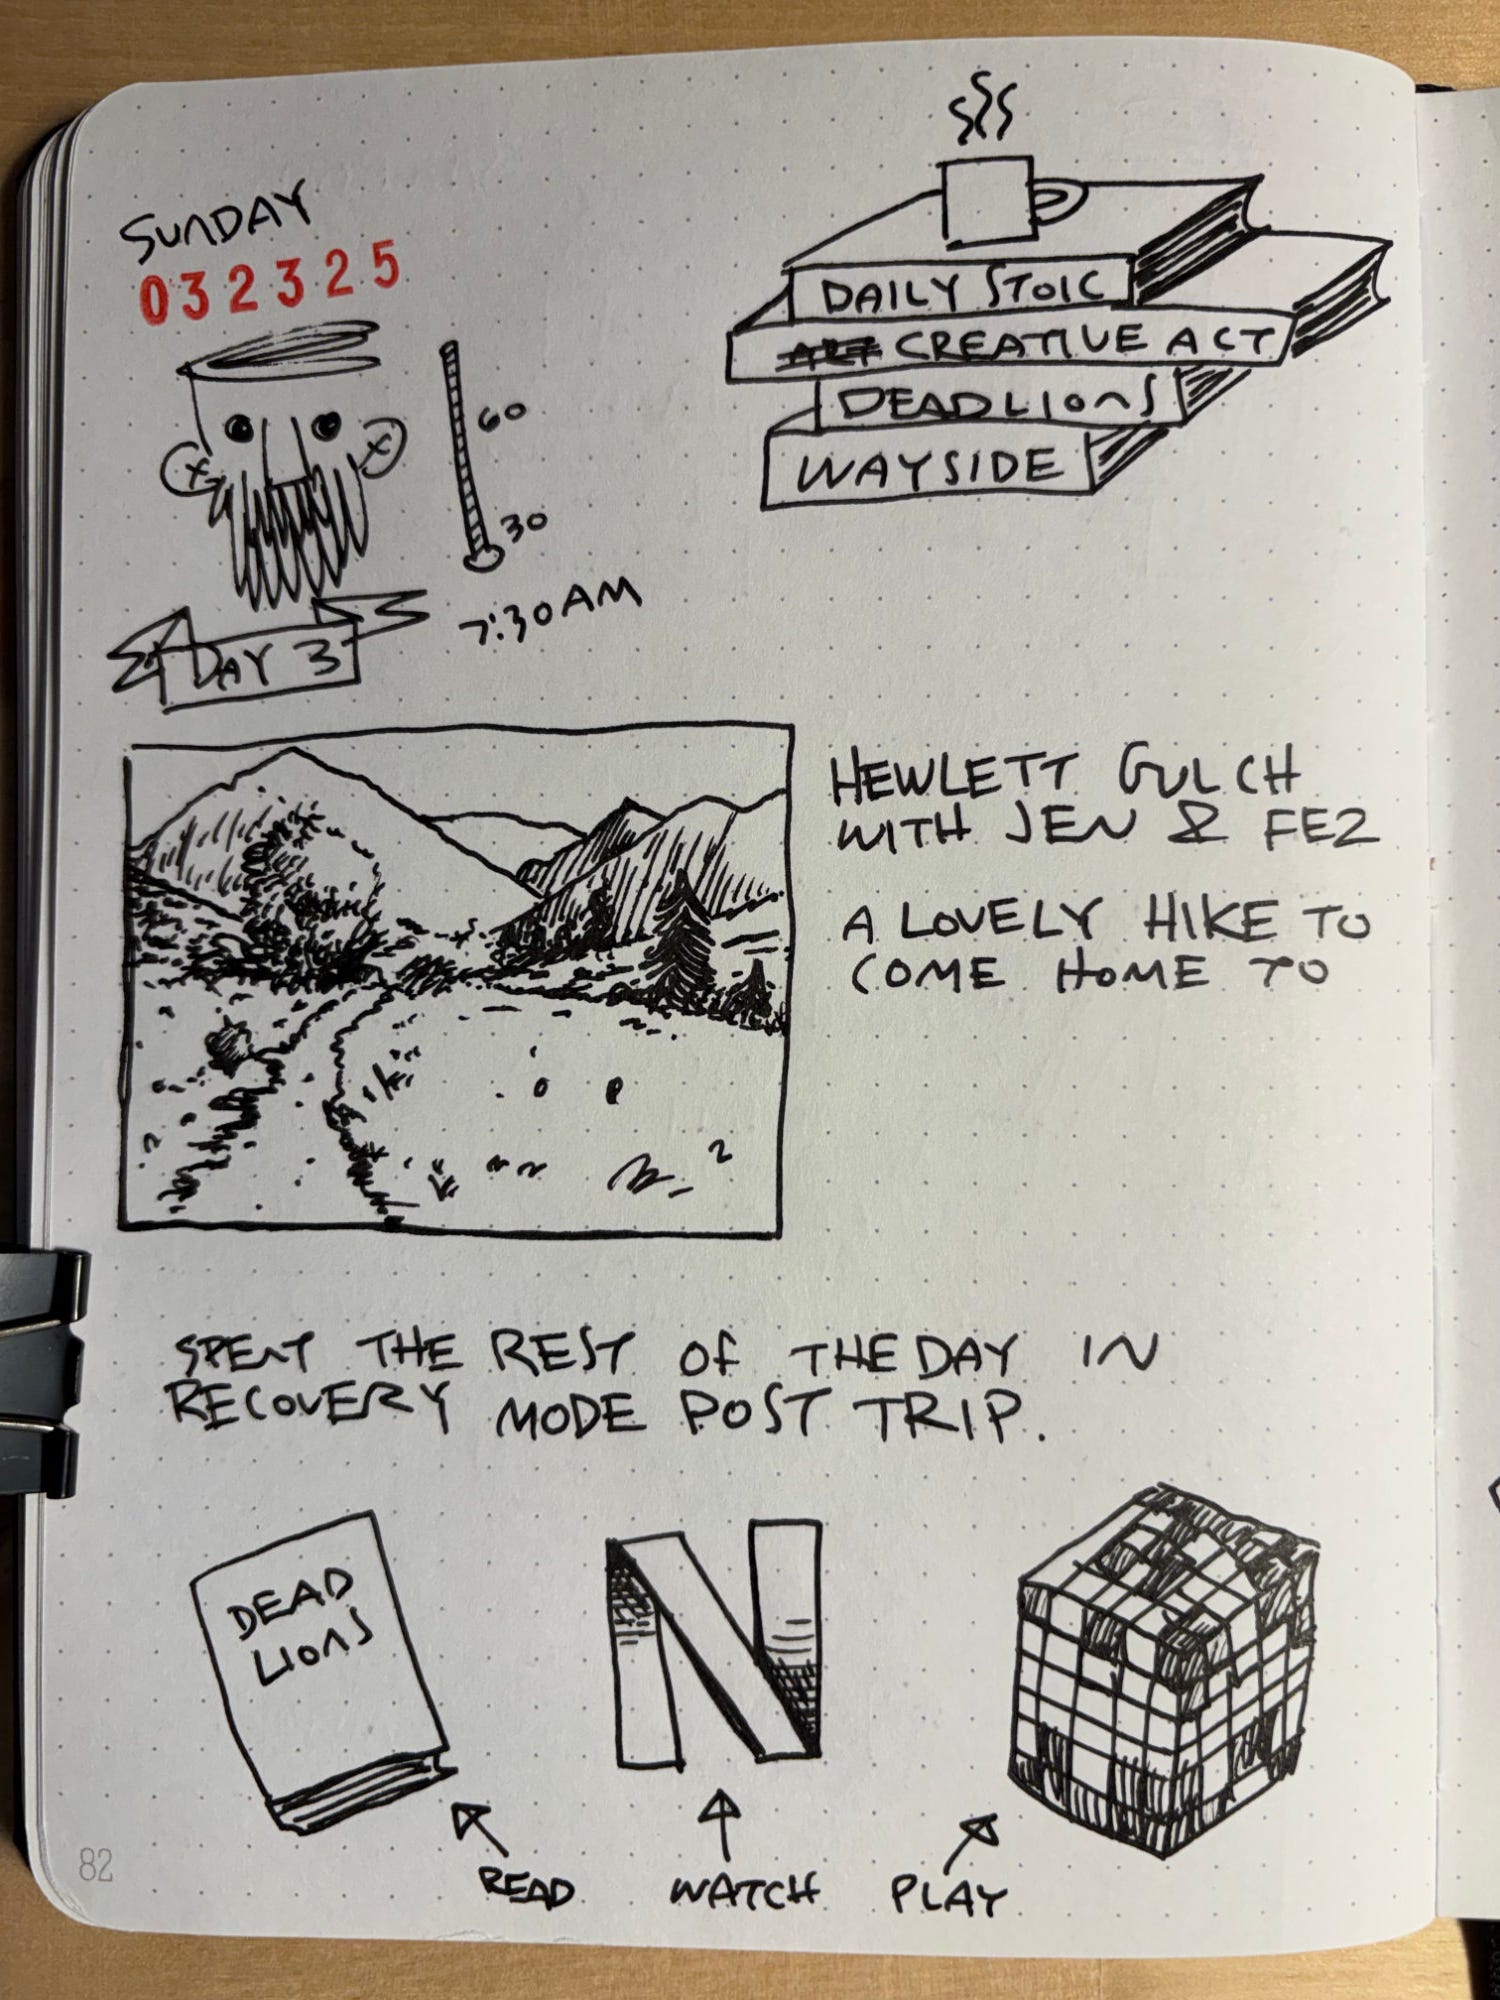 SUNDAY
032325
60
30
7:30AM
DAY 3
DAILY STOIC
CREATIVE ACT
DEAD LIONS
WAYSIDE
HEWLETT GULCH
WITH JEN & FEZ
A LOVELY HIKE TO
COME HOME TO
SPENT THE REST OF THE DAY IN
RECOVERY MODE POST TRIP.
DEAD
LIONS
N
READ
WATCH
PLAY
82